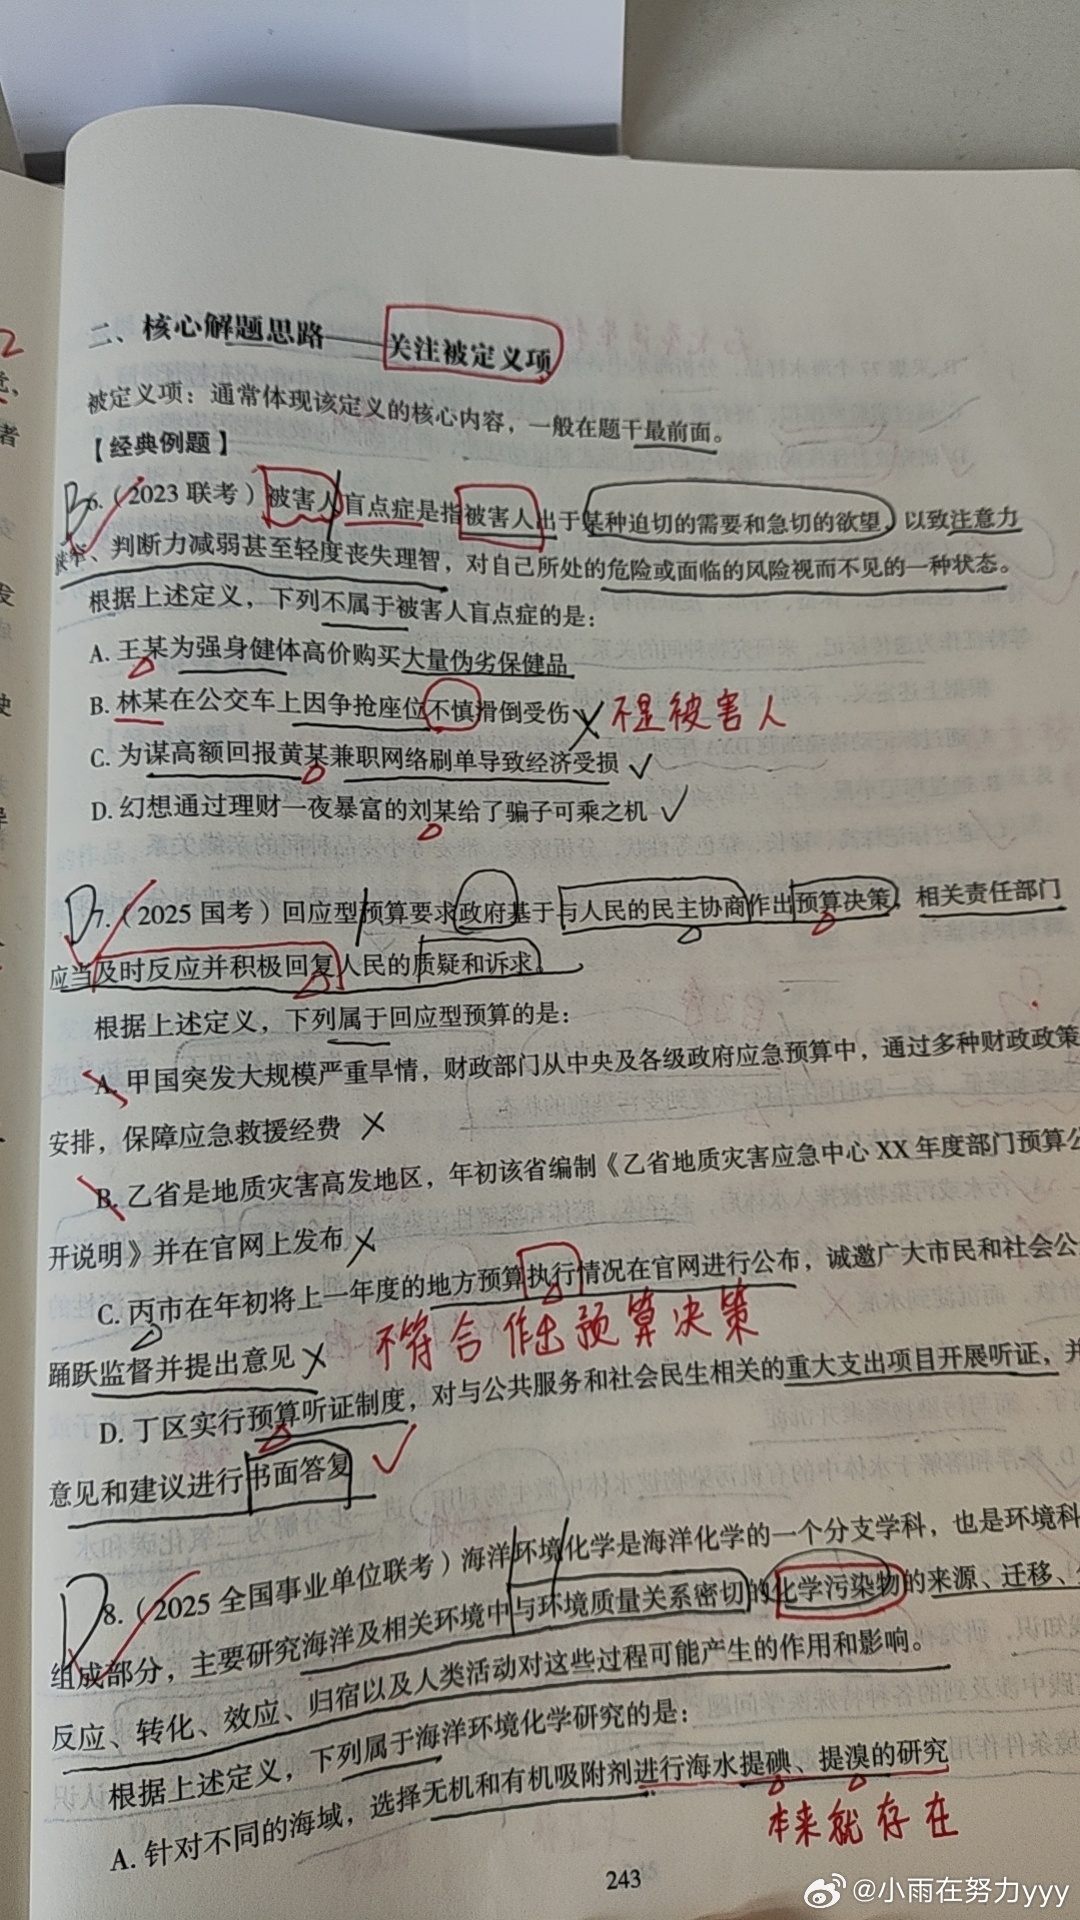 二、核心解题思路——关注被定义项
被定义项：通常体现该定义的核心内容，一般在题干最前面。
【经典例题】
B 6.（2023 联考）被害人盲点症是指被害人出于某种迫切的需要和急切的欲望，以致注意力
、判断力减弱甚至轻度丧失理智，对自己所处的危险或面临的风险视而不见的一种状态。
根据上述定义，下列不属于被害人盲点症的是：
A. 王某为强身健体高价购买大量伪劣保健品
B. 林某在公交车上因争抢座位不慎滑倒受伤 不是被害人
C. 为谋高额回报黄某兼职网络刷单导致经济受损
D. 幻想通过理财一夜暴富的刘某给了骗子可乘之机
D 7.（2025 国考）回应型预算要求政府基于与人民的民主协商作出预算决策，相关责任部门
应当及时反应并积极回复人民的质疑和诉求。
根据上述定义，下列属于回应型预算的是：
A. 甲国突发大规模严重旱情，财政部门从中央及各级政府应急预算中，通过多种财政政策
安排，保障应急救援经费
B. 乙省是地质灾害高发地区，年初该省编制《乙省地质灾害应急中心 XX 年度部门预算公
开说明》并在官网上发布
C. 丙市在年初将上一年度的地方预算执行情况在官网进行公布，诚邀广大市民和社会公
不符合作出预算决策
踊跃监督并提出意见
D. 丁区实行预算听证制度，对与公共服务和社会民生相关的重大支出项目开展听证，并
意见和建议进行书面答复
D 8.（2025 全国事业单位联考）海洋环境化学是海洋化学的一个分支学科，也是环境科
组成部分，主要研究海洋及相关环境中与环境质量关系密切的化学污染物的来源、迁移、
反应、转化、效应、归宿以及人类活动对这些过程可能产生的作用和影响。
根据上述定义，下列属于海洋环境化学研究的是：
A. 针对不同的海域，选择无机和有机吸附剂进行海水提碘、提溴的研究
本来就存在
243
@小雨在努力yyy